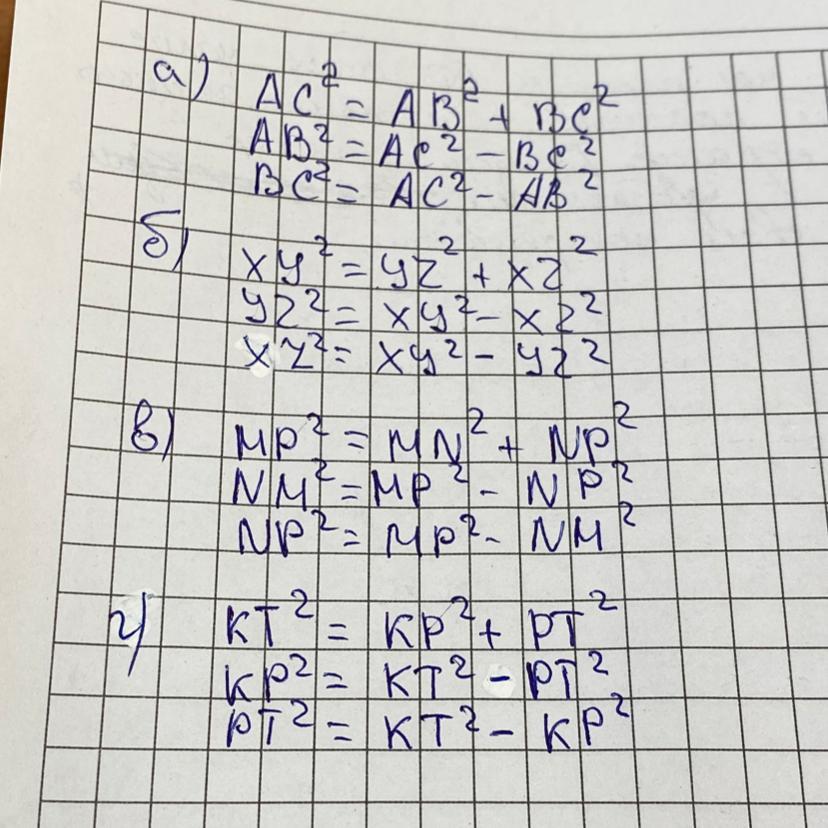 а) AC² = AB² + BC²
AB² = AC² - BC²
BC² = AC² - AB²
б) XY² = YZ² + XZ²
YZ² = XY² - XZ²
XZ² = XY² - YZ²
в) MP² = MN² + NP²
NM² = MP² - NP²
NP² = MP² - NM²
г) KT² = KP² + PT²
KP² = KT² - PT²
PT² = KT² - KP²